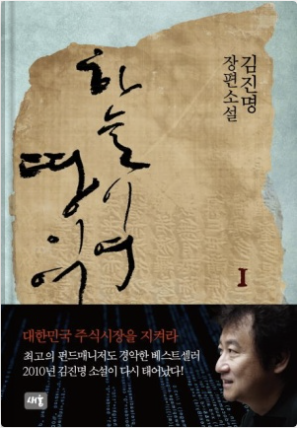 하늘이여
땅이여
김진명
장편소설
I
대한민국 주식시장을 지켜라
최고의 펀드매니저도 경악한 베스트셀러
2010년 김진명 소설이 다시 태어났다!
새움